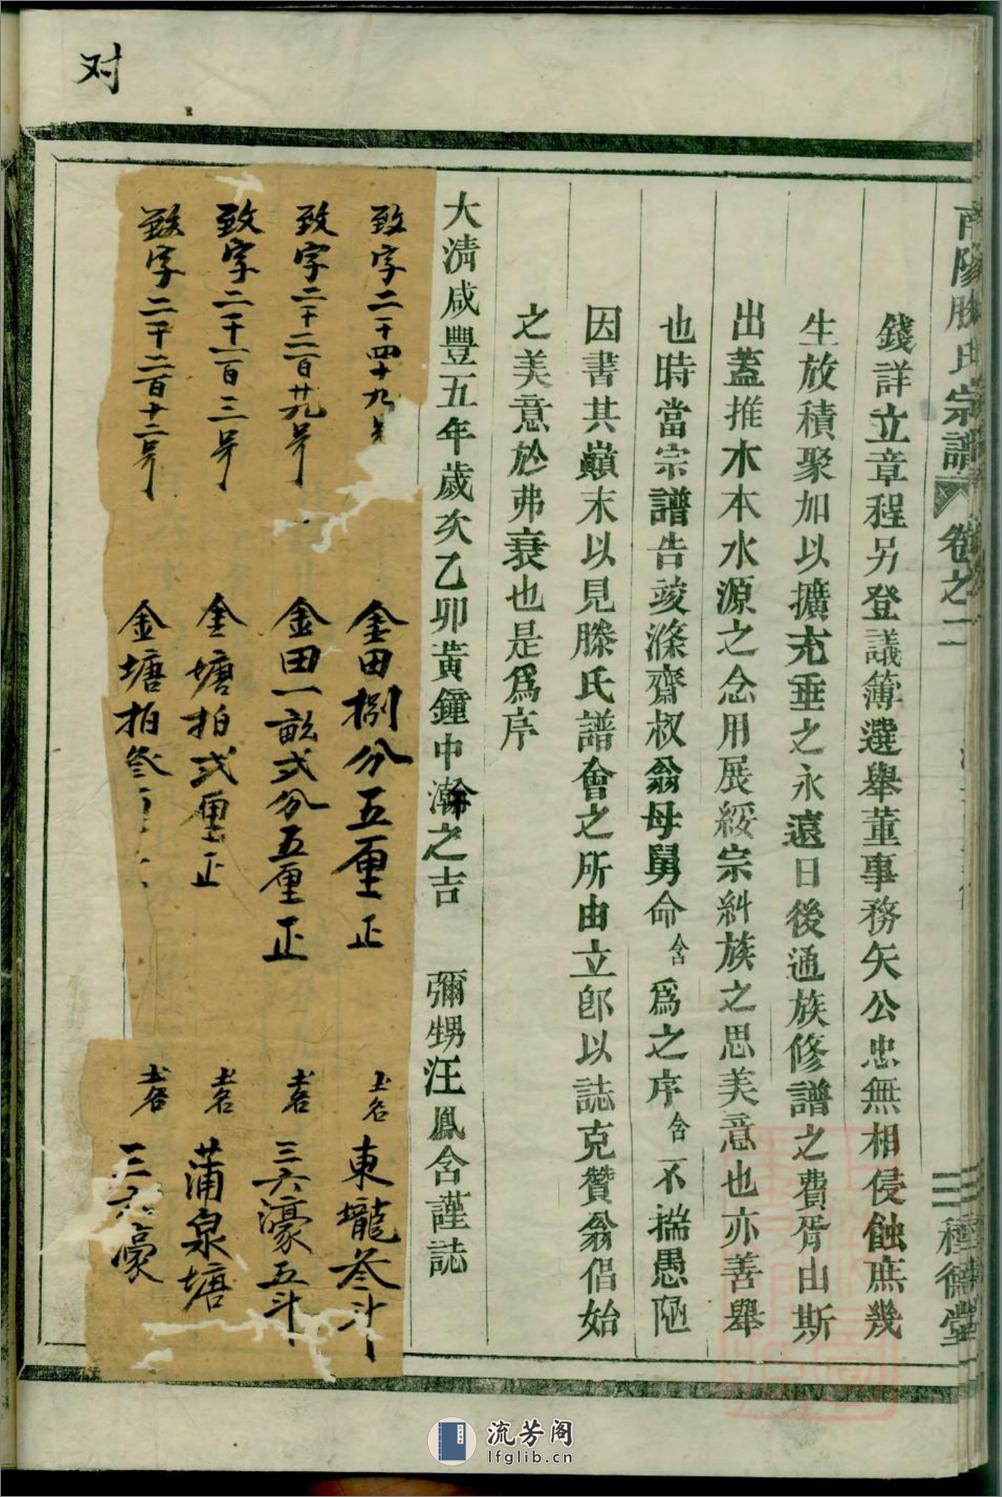 对
南陽滕氏宗譜 卷之二 種德堂
錢詳立章程另登議簿選舉董事務矢公忠無相侵蝕庶幾
生放積聚加以擴充垂之永遠日後通族修譜之費胥由斯
出蓋推木本水源之念用展綏宗糾族之思美意也亦善舉
也時當宗譜告竣滌齋叔翁母舅命含爲之序含不揣愚陋
因書其巔末以見滕氏譜會之所由立卽以誌克贊翁倡始
之美意於弗衰也是爲序
大淸咸豐五年歲次乙卯黃鐘中瀚之吉 彌甥汪鳳含謹誌
致字二千四十九号 金田捌分五厘正 土名東壠叁斗
致字二千二百廿九号 金田一畝弍分五厘正 土名三六濠五斗
致字二千一百三号 金塘拍弍厘正 土名蒲泉塘
致字二千二百十二号 金塘拍叁 土名三六濠
流芳阁
lfglib.cn